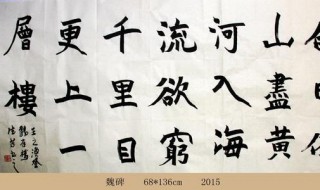 白日依
山盡黃
河入海
流欲窮
千里目
更上一
層樓
王之渙登
鸛雀樓
魏碑 68*136cm 2015